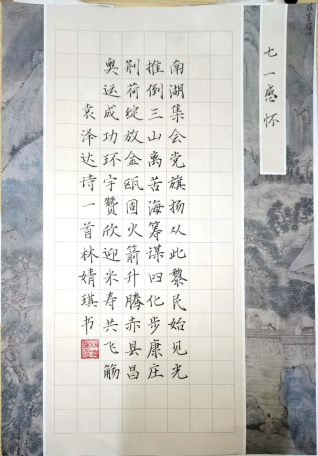 七一感怀
南湖集会党旗扬从此黎民始见光
推倒三山离苦海筹谋四化步康庄
荆荷绽放金瓯固火箭升腾赤县昌
奥运成功环宇赞欣迎米寿共飞觞
袁泽达诗一首林婧琪书